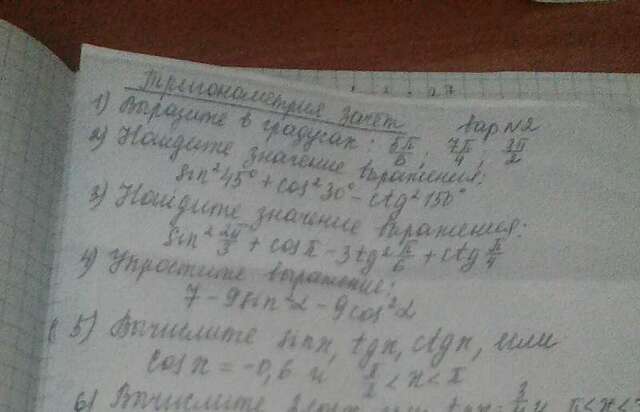 Тригонометрия зачет
вар N2
1) Выразите в градусах: 5π/6, 7π/4, 3π/2
2) Найдите значение выражения:
sin²45° + cos²30° - ctg²150°
3) Найдите значение выражения:
sin² 2π/3 + cos π - 3tg² π/6 + ctg π/4
4) Упростите выражение:
7 - 9sin²α - 9cos²α
5) Вычислите sinx, tgx, ctgx, если
cos x = -0,6 и π/2 < x < π
6) Вычислите